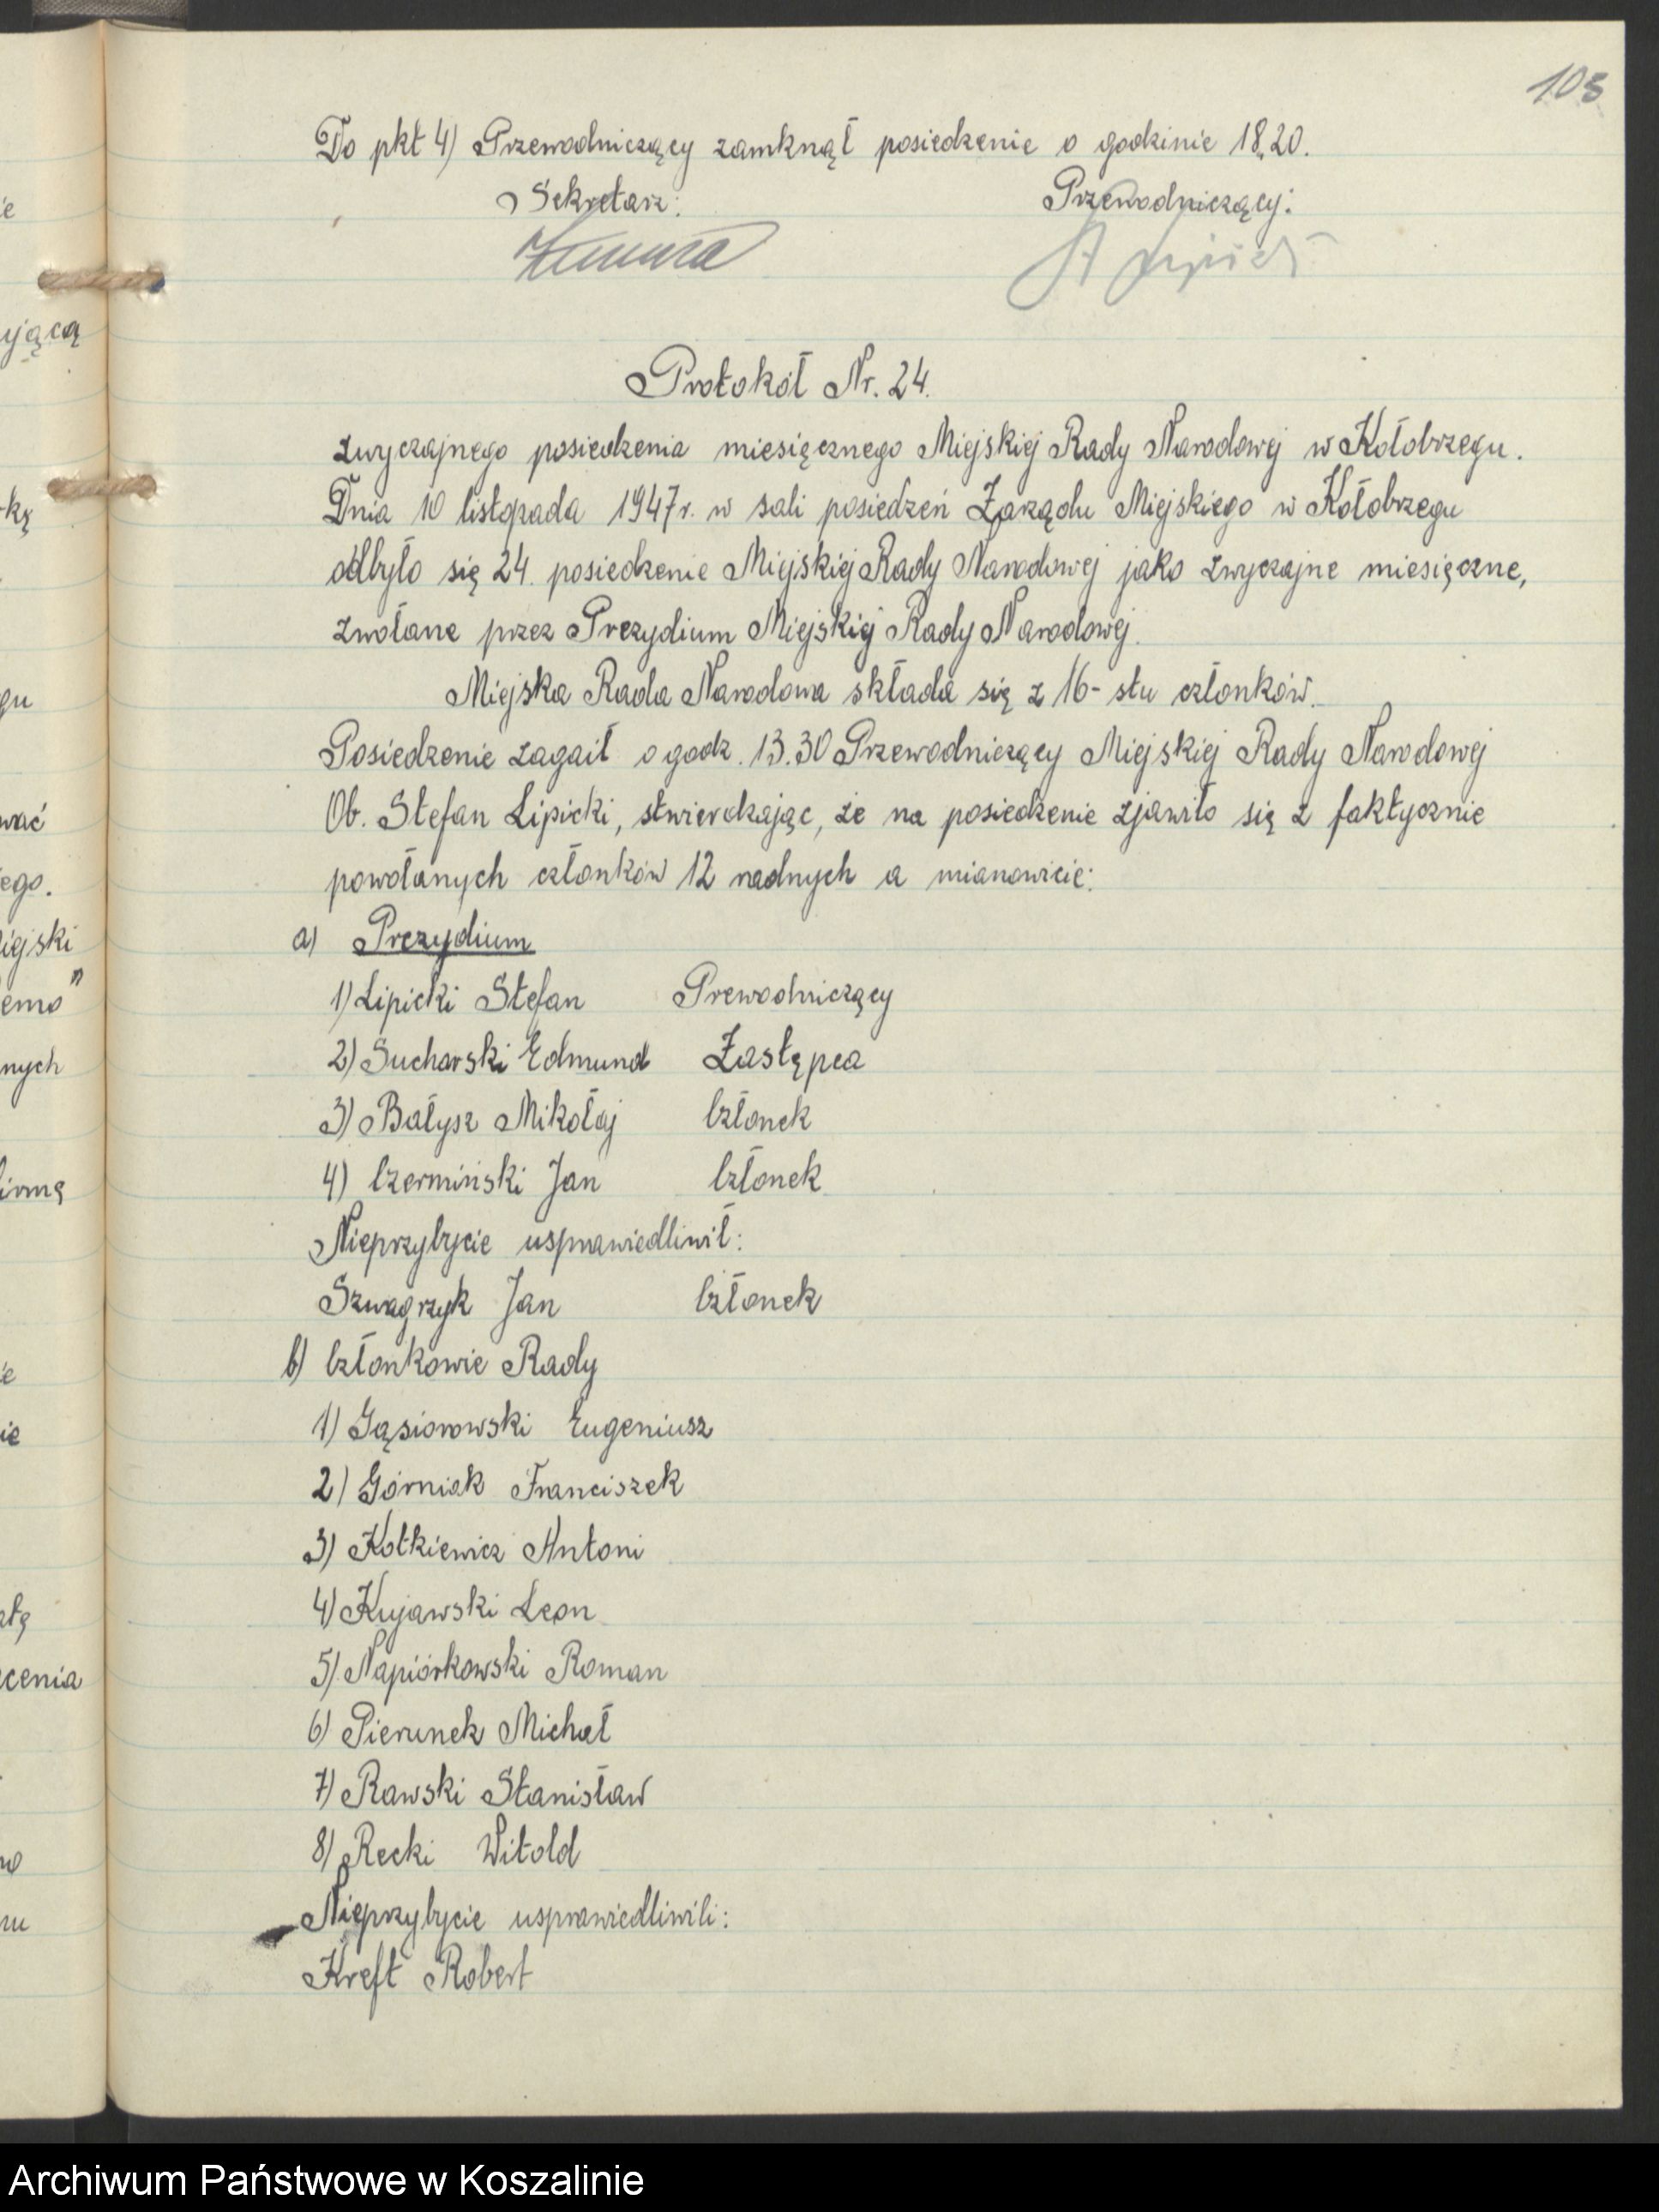 103
Do pkt 4) Przewodniczący zamknął posiedzenie o godzinie 18.20.
Sekretarz: Przewodniczący:
Protokół Nr. 24.
zwyczajnego posiedzenia miesięcznego Miejskiej Rady Narodowej w Kołobrzegu.
Dnia 10 listopada 1947 r. w sali posiedzeń Zarządu Miejskiego w Kołobrzegu
odbyło się 24. posiedzenie Miejskiej Rady Narodowej jako zwyczajne miesięczne,
zwołane przez Prezydium Miejskiej Rady Narodowej.
Miejska Rada Narodowa składa się z 16-stu członków.
Posiedzenie zagaił o godz. 13.30 Przewodniczący Miejskiej Rady Narodowej
Ob. Stefan Lipicki, stwierdzając, że na posiedzenie zjawiło się z faktycznie
powołanych członków 12 radnych a mianowicie:
a) Prezydium
1) Lipicki Stefan Prewodniczący
2) Sucharski Edmund Zastępca
3) Bałysz Mikołaj Członek
4) Czermiński Jan Członek
Nieprzybycie usprawiedliwił:
Szwagrzyk Jan Członek
b) Członkowie Rady
1) Gąsiorowski Eugeniusz
2) Górniak Franciszek
3) Kotkiewicz Antoni
4) Kujawski Leon
5) Napiórkowski Roman
6) Pierunek Michał
7) Rawski Stanisław
8) Recki Witold
Nieprzybycie usprawiedliwili:
Kreft Robert
Archiwum Państwowe w Koszalinie